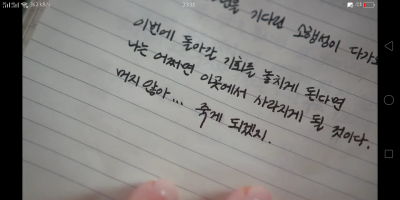 기다린 소행성이 다가오
이번에 돌아갈 기회를 놓치게 된다면
나는 어쩌면 이곳에서 사라지게 될 것이다.
머지 않아... 죽게 되겠지.